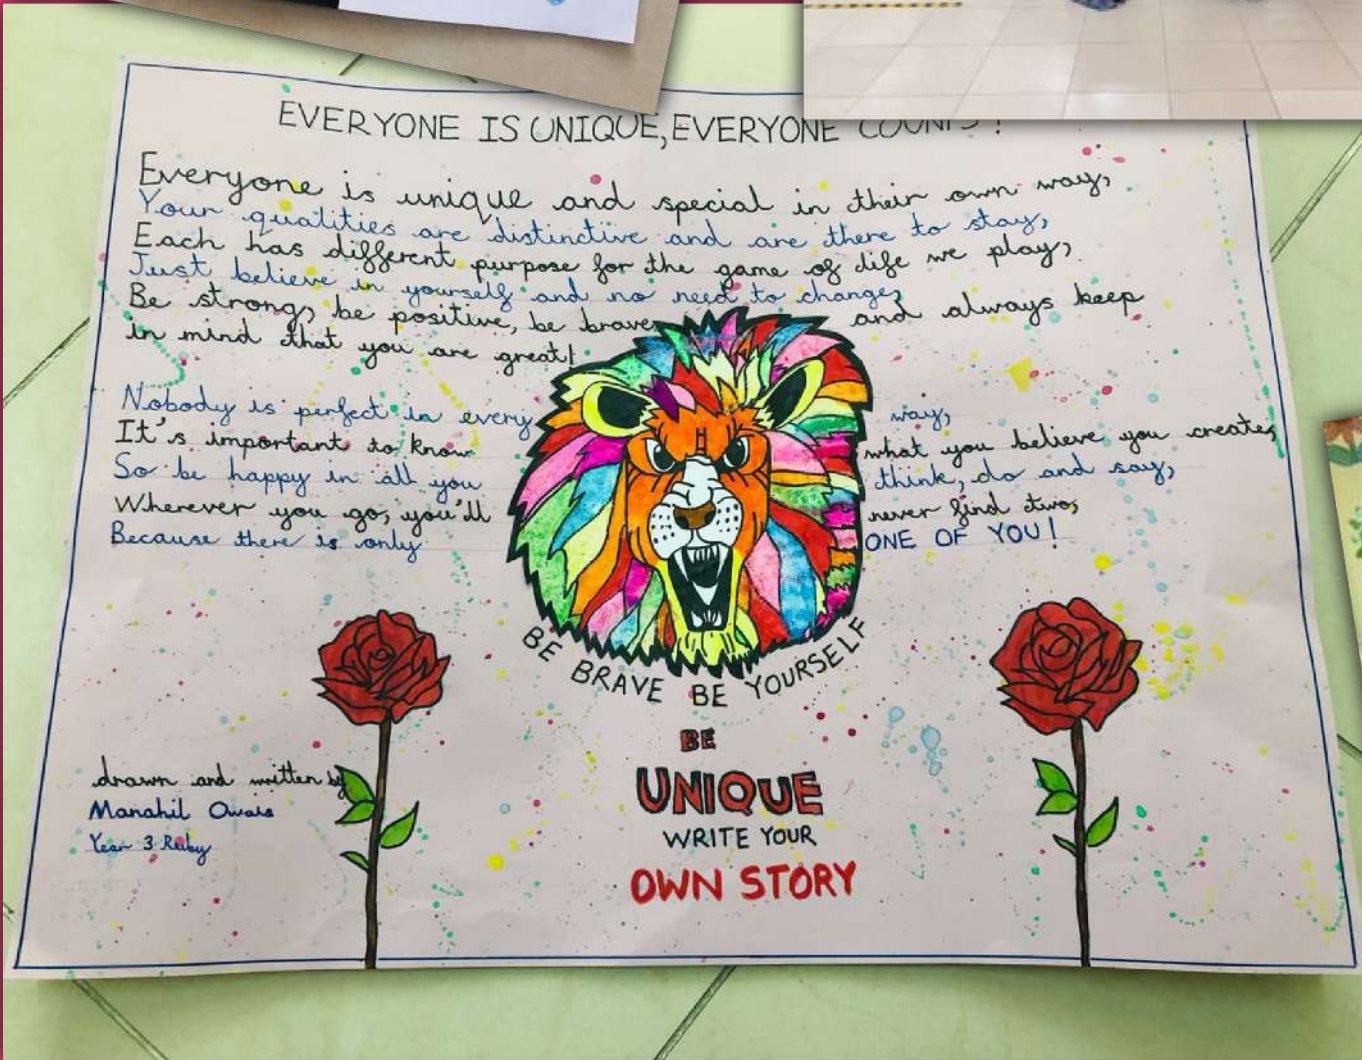 EVERYONE IS UNIQUE, EVERYONE COUNTS!
Everyone is unique and special in their own way,
Your qualities are distinctive and are there to stay,
Each has different purpose for the game of life we play,
Just believe in yourself and no need to change,
Be strong, be positive, be brave and always keep
in mind that you are great!
Nobody is perfect in every way,
It's important to know what you believe you create,
So be happy in all you think, do and say,
Wherever you go, you'll never find two,
Because there is only ONE OF YOU!
BE BRAVE BE YOURSELF
BE
UNIQUE
WRITE YOUR
OWN STORY
drawn and written by
Manahil Owais
Year 3 Ruby